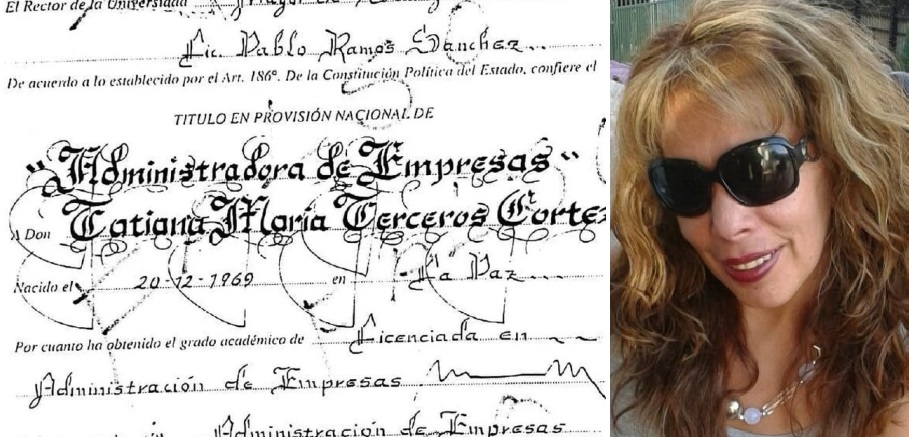 El Rector de la Universidad Mayor de
Lic. Pablo Ramos Sanchez
De acuerdo a lo establecido por el Art. 186º. De la Constitución Política del Estado, confiere el
TITULO EN PROVISIÓN NACIONAL DE
"Administradora de Empresas"
A Don Tatiana Maria Terceros Corte
Nacido el 20-12-1969 en La Paz
Por cuanto ha obtenido el grado académico de Licenciada en
Administración de Empresas
Administración de Empresas